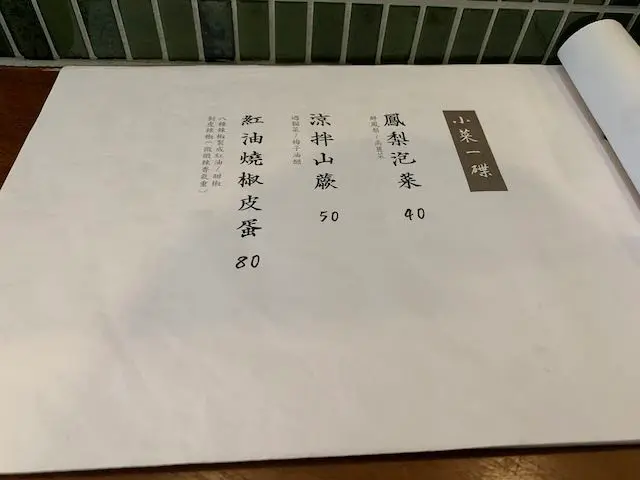 小菜一碟
鳳梨泡菜
鮮鳳梨/高麗菜
40
涼拌山蕨
過貓菜/梅子油醋
50
紅油燒椒皮蛋
八種辣椒製成紅油/甜椒
剝皮辣椒(微微辣香氣重)
80